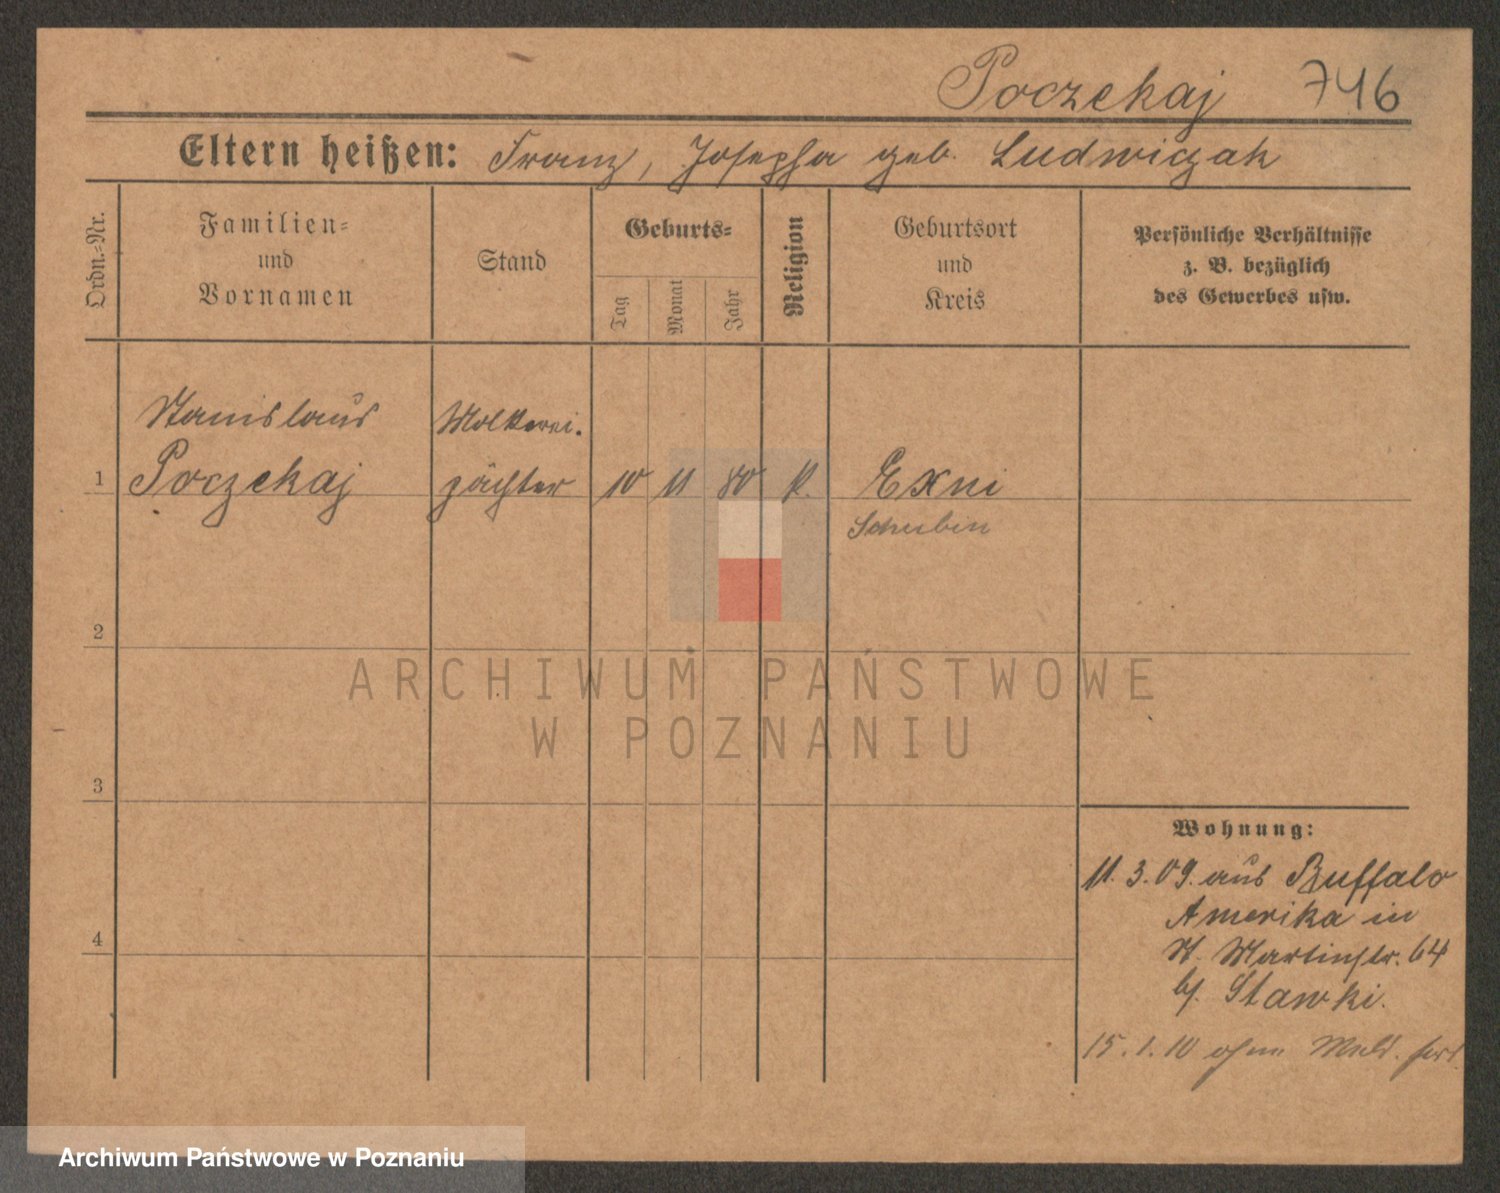 Poczekaj 746
Eltern heißen: Franz, Josepha geb. Ludwiczak
Ordn.-Nr.
Familien-
und
Vornamen
Stand
Geburts-
Tag
Monat
Jahr
Religion
Geburtsort
und
Kreis
Persönliche Verhältnisse
z. B. bezüglich
des Gewerbes usw.
Stanislaus Molkerei-
1 Poczekaj pächter 10 11 80 k. Exni
Schubin
2
3
4
Wohnung:
11.3.09. aus Buffalo
Amerika in
St. Martinstr. 64
bj. Stawki.
15.1.10 ohne Meld. fort
ARCHIWUM PAŃSTWOWE
W POZNANIU
Archiwum Państwowe w Poznaniu